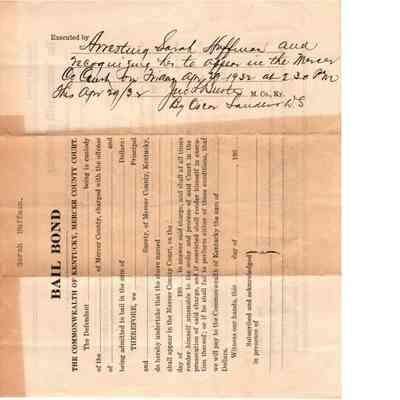 Executed by Arresting Sarah Huffman and
recognizing her to appear in the Mercer
Co Court on Friday Apr 29 1932 at 2:30 P.M.
this Apr 29/32 M. Co., Ky.
By Oscar Sanders D.S
Sarah Huffman.
BAIL BOND
THE COMMONWEALTH OF KENTUCKY, MERCER COUNTY COURT.
The Defendant being in custody
of the of Mercer County, charged with the offense
of and
being admitted to bail in the sum of Dollars:
THEREFORE, we Principal
and Surety, of Mercer County, Kentucky,
do hereby undertake that the above named
shall appear in the Mercer County Court, on the
day of 193 , to answer said charge, and shall at all times
render himself amenable to the order and process of said Court in the
prosecution of said charge, and if convicted shall render himself in execu-
tion thereof; or if he shall fail to perform either of these conditions, that
we will pay to the Commonwealth of Kentucky the sum of
Dollars.
Witness our hands, this day of , 193 .
Subscribed and acknowledged
in presence of